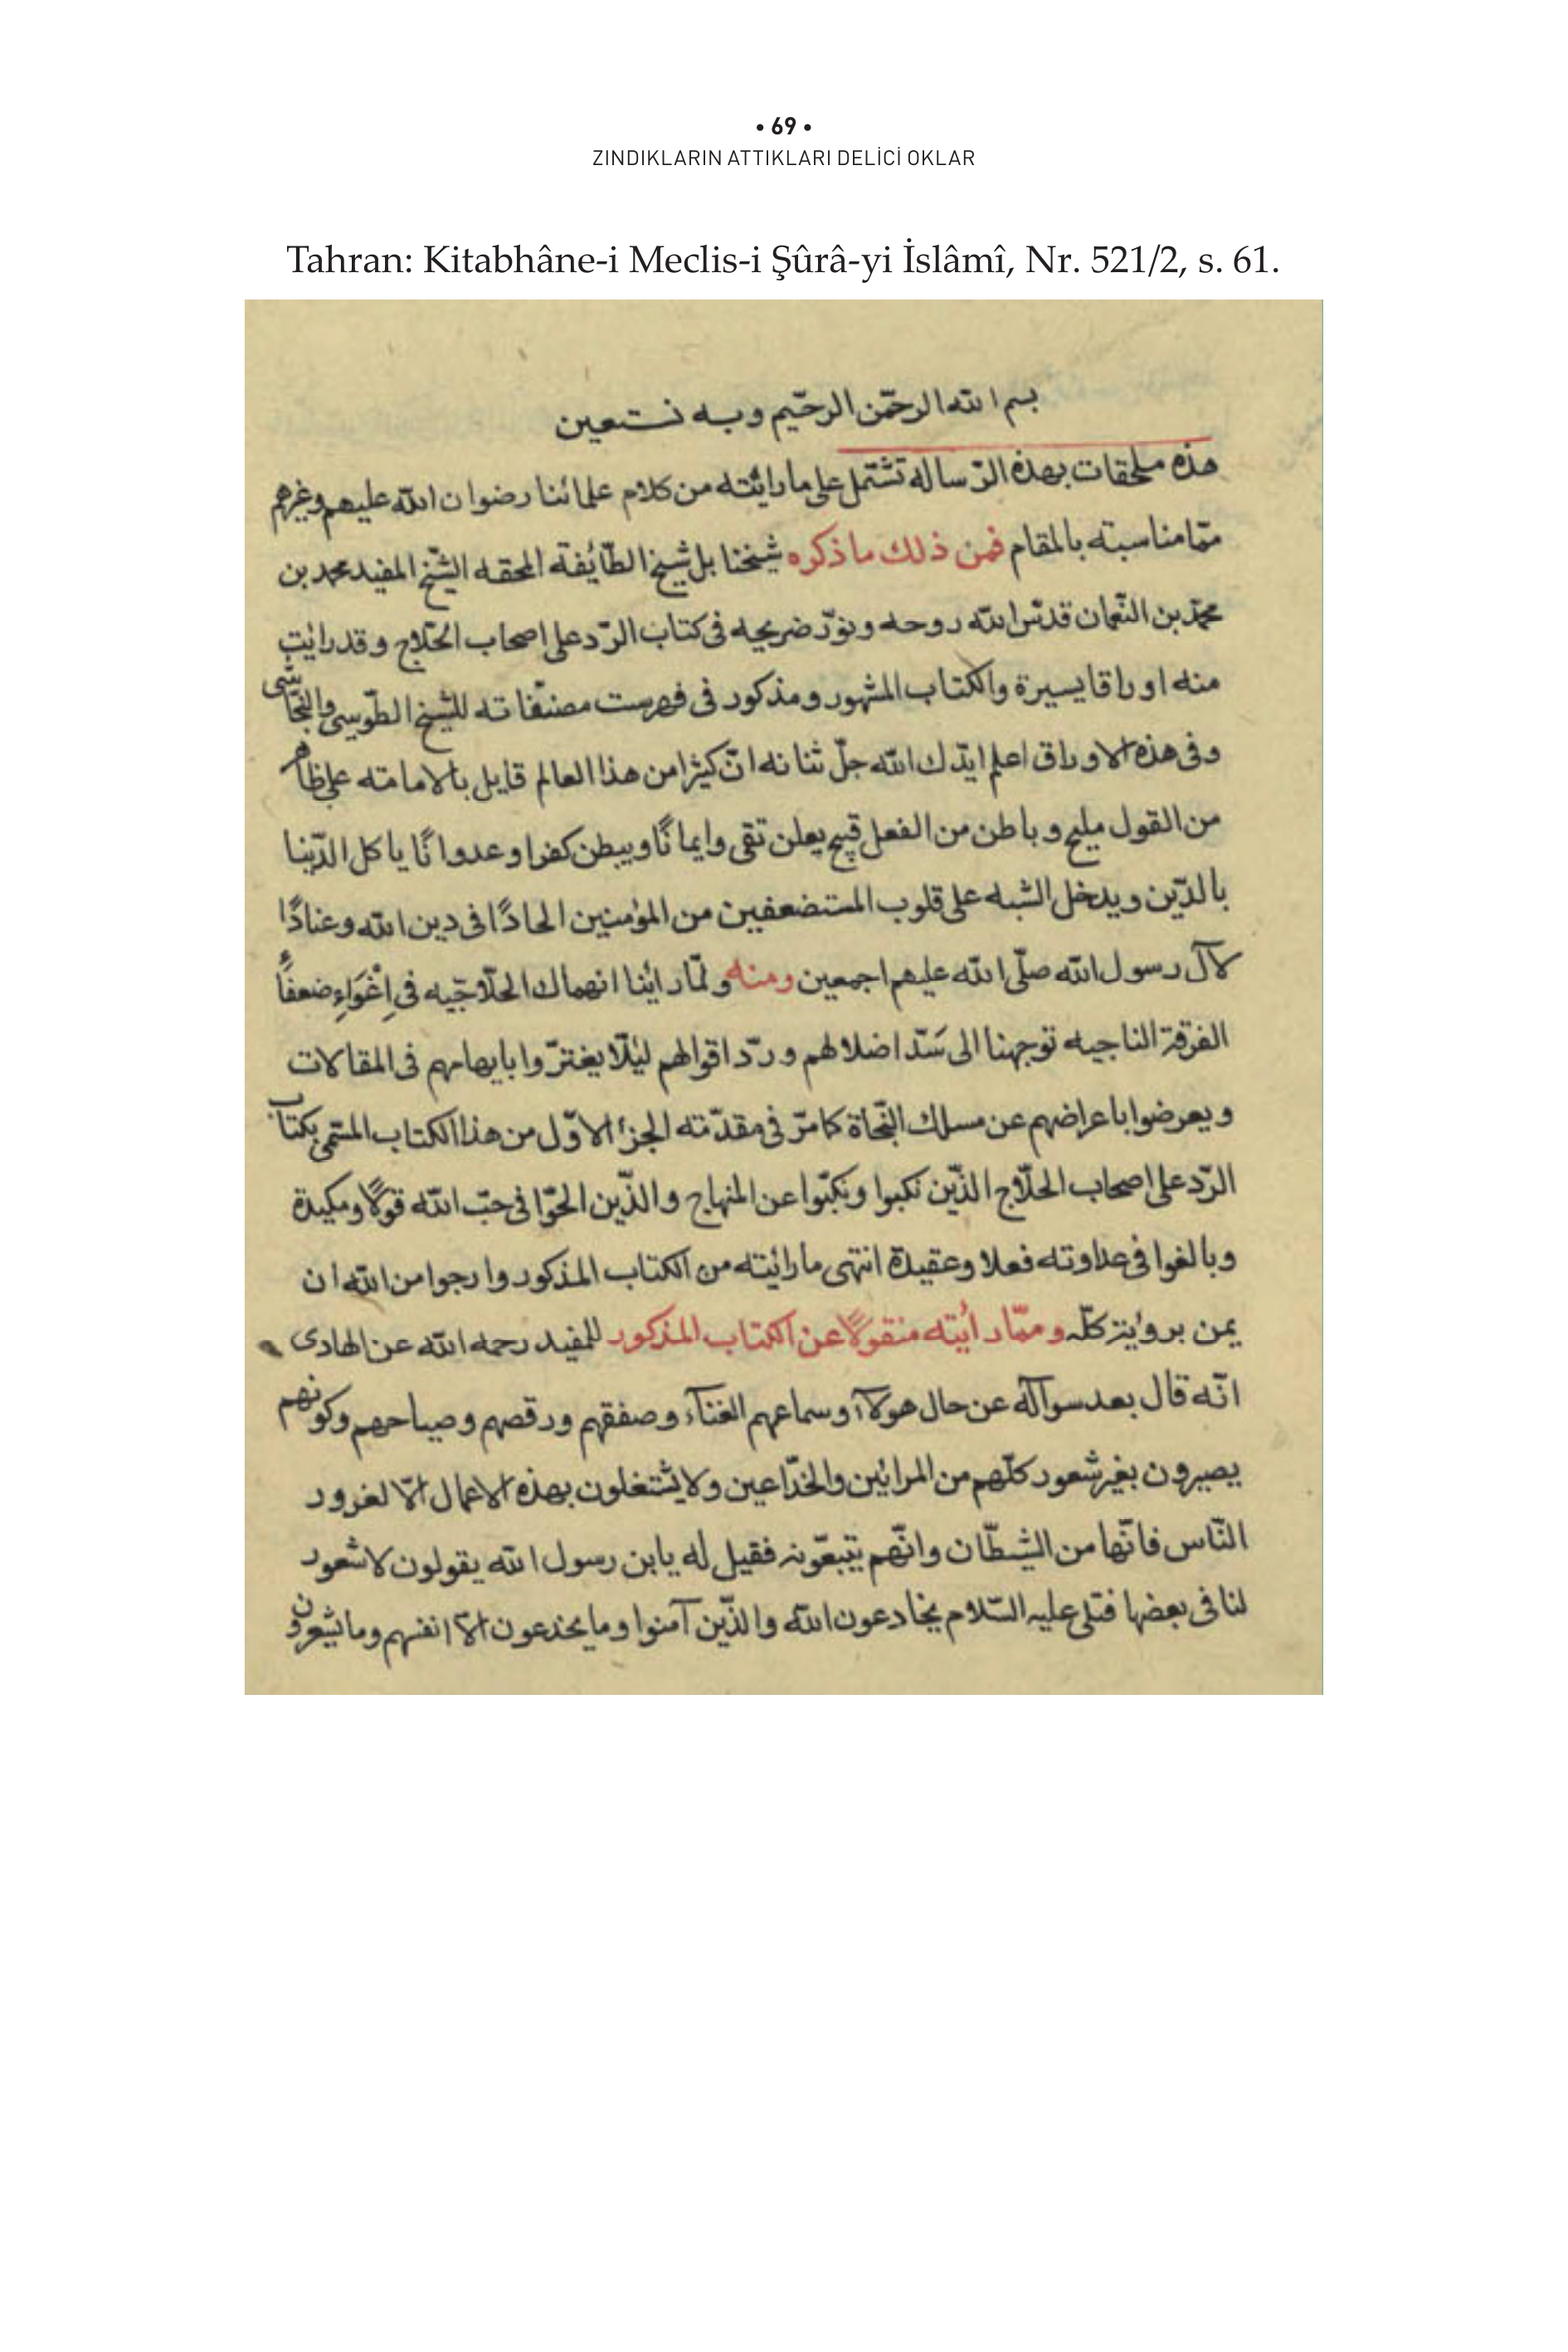 • 69 •
ZINDIKLARIN ATTIKLARI DELİCİ OKLAR
Tahran: Kitabhâne-i Meclis-i Şûrâ-yi İslâmî, Nr. 521/2, s. 61.
بسم الله الرحمن الرحيم وبه نستعين
هذه ملحقات بهذه الرّساله تشتمل على ما رائته من كلام علمائنا رضوان الله عليهم وغيرهم
ممّا مناسبته بالمقام فمن ذلك ما ذكره شيخنا بل شيخ الطّائفة المحقه الشّيخ المفيد محمد بن
محمّد بن النّعمان قدّس الله روحه ونوّر ضريحه فى كتاب الرّد على اصحاب الحلّاج وقد رايت
منه اوراقا يسيرة والكتاب المشهور ومذكور فى فهرست مصنّفاته للشّيخ الطّوسى والنّجاشى
وفى هذه الاوراق اعلم ايّدك الله جلّ ثنائه انّ كثيرا من هذا العالم قايل بالامامته على ظاهر
من القول مليح و باطن من الفعل قبيح يعلن تقى وايمانًا ويبطن كفرا وعدوانًا ياكل الدّنيا
بالدّين ويدخل الشبه على قلوب المستضعفين من المؤمنين الحادًا فى دين الله وعنادًا
لآل رسول الله صلّى الله عليهم اجمعين ومنه ولمّا رائنا انهماك الحلّاجيه فى اِغْوَاءِ ضعفاء
الفرقة الناجيه توجهنا الى سَدّ اضلالهم و ردّ اقوالهم لئلّا يغترّوا بايهامهم فى المقالات
ويعرضوا باعراضهم عن مسلك النّجاة كما مرّ فى مقدّمته الجزء الاوّل من هذا الكتاب المسمّى بكتاب
الرّد على اصحاب الحلّاج الذّين نكبوا ونكبّوا عن المنهاج والذّين الحّوا فى حبّ الله قولًا ومكيدة
وبالغوا فى عداوته فعلا وعقيدة انتهى ما رائيته من الكتاب المذكور وارجوا من الله ان
يمن برؤية كلّه وممّا رأيته منقولًا عن الكتاب المذكور للمفيد رحمه الله عن الهادى
انّه قال بعد سوآله عن حال هولآء وسماعهم الغنآء وصفقهم ورقصهم وصياحهم وكونهم
يصيرون بغير شعور كلّهم من المرائين والخدّاعين ولا يشتغلون بهذه الاعمال الّا لغرور
النّاس فانّها من الشّيطان وانّهم يتبعّونه فقيل له يابن رسول الله يقولون لا شعور
لنا فى بعضها فتلى عليه السّلام يخادعون الله والذّين آمنوا وما يخدعون الّا انفسهم وما يشعرون